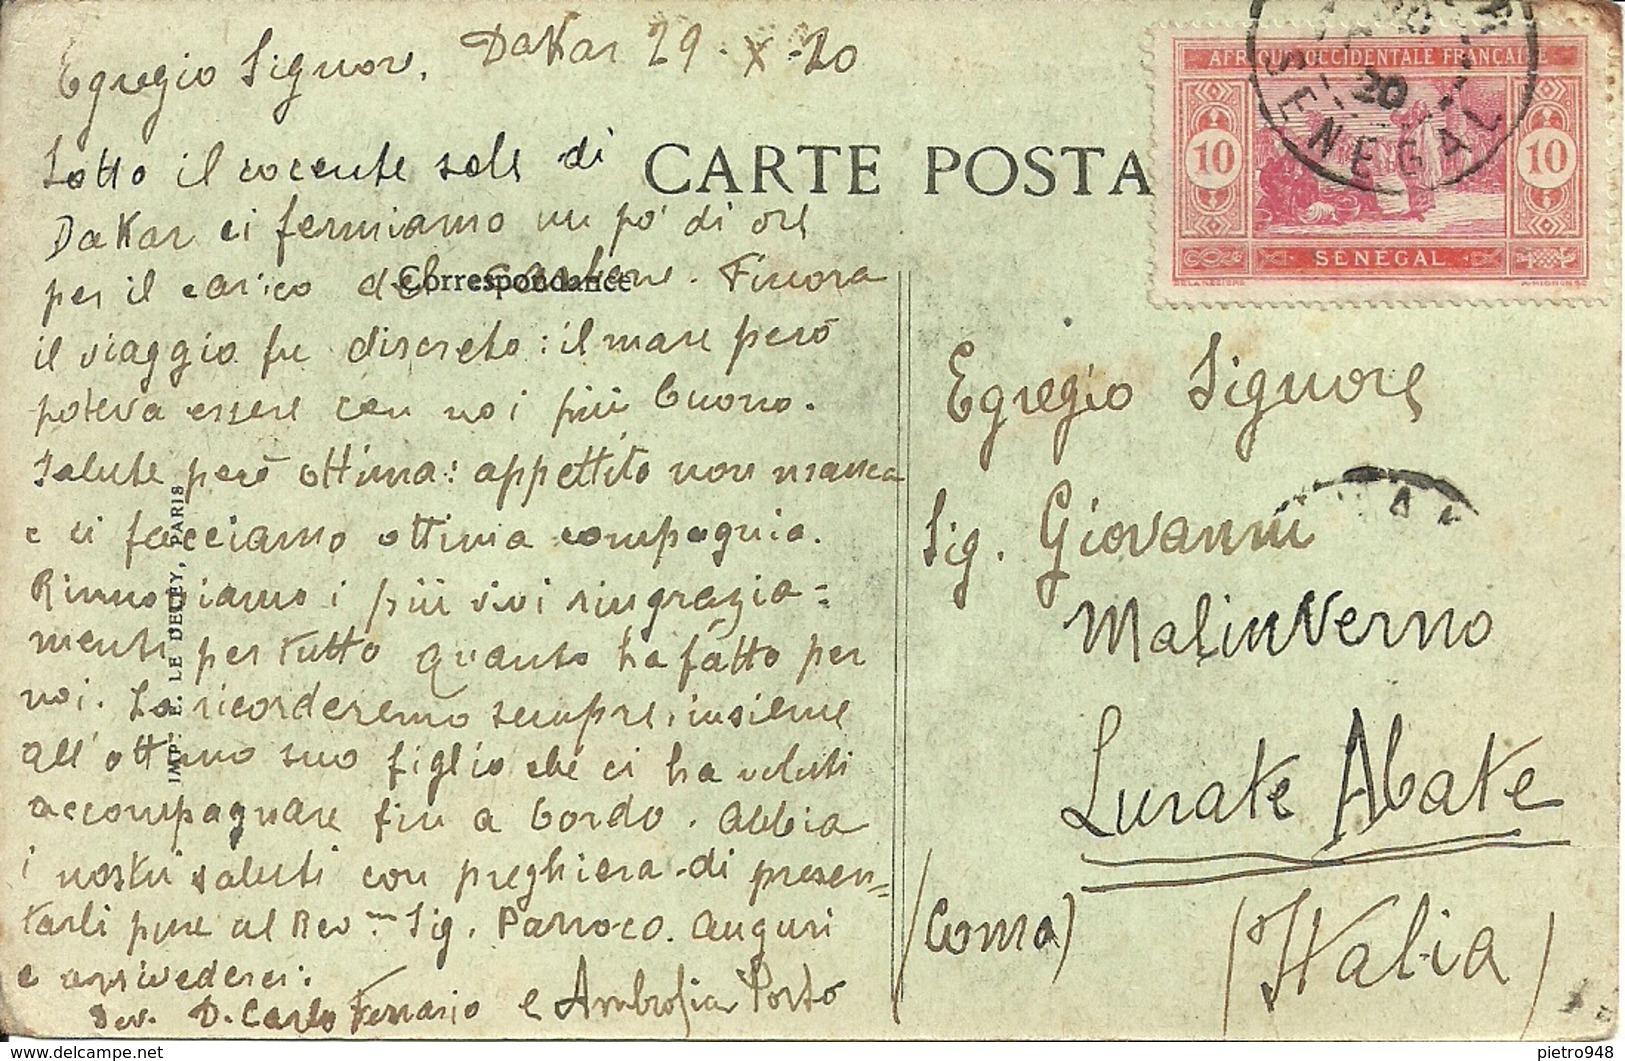 Egregio Signor, Dakar 29-X-20
Sotto il cocente sole di
Dakar ci fermiamo un po' di ore
per il carico del carbone. Finora
il viaggio fu discreto: il mare però
poteva essere con noi più buono.
Salute però ottima: appettito non manca
e ci facciamo ottima compagnia.
Rinnoviamo i più vivi ringrazia=
menti per tutto quanto ha fatto per
noi. La ricorderemo sempre, insieme
all'ottimo suo figlio che ci ha voluti
accompagnare fin a bordo. Abbia
i nostri saluti con preghiera di presen=
tarli pure al Rev.mo Sig. Parroco. Auguri
e arrivederci:
Dev. D. Carlo Ferrario e Ambrogia Porto
CARTE POSTA
Correspondance
IMP. E. LE DELEY, PARIS
AFRIQUE OCCIDENTALE FRANÇAISE
10 10
SÉNÉGAL
20
SENEGAL
Egregio Signore
Sig. Giovanni
Malinverno
Lurate Abate
(Como)
(Italia)
pietro948